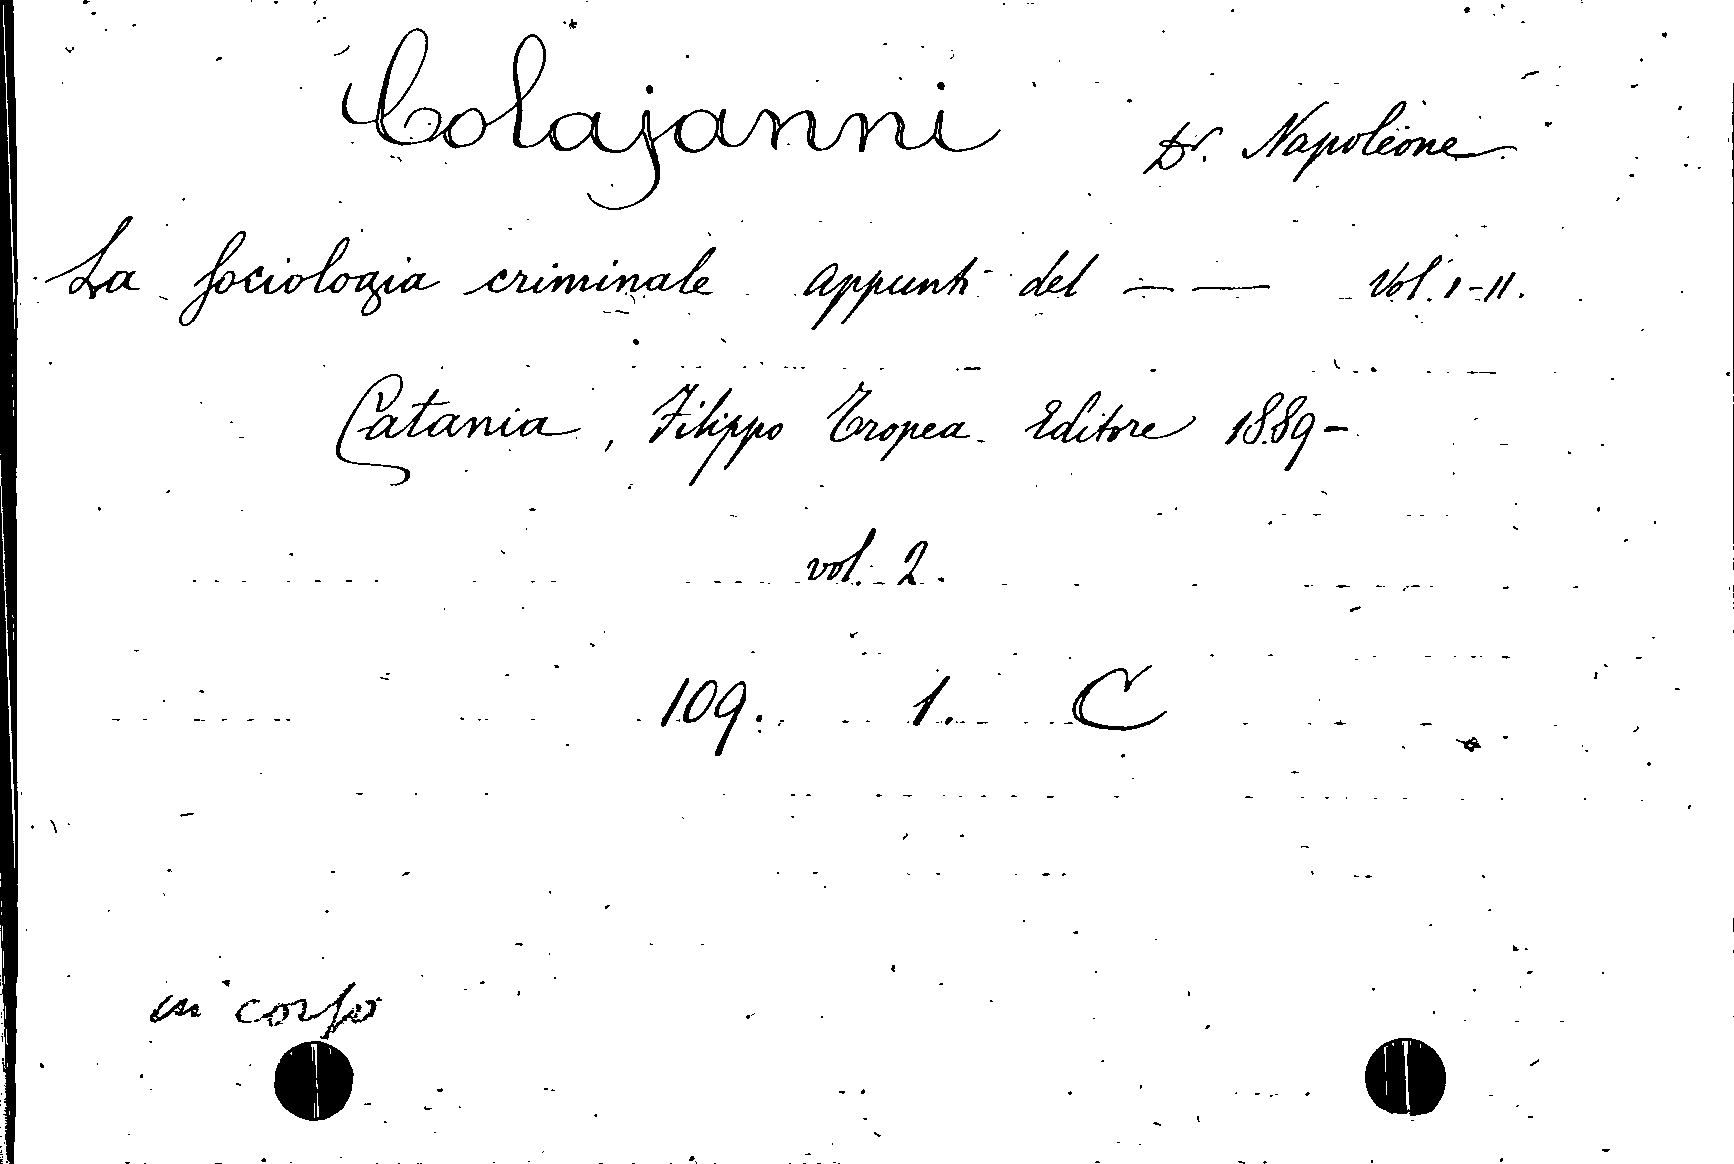 Colajanni Dr. Napoleone
La sociologia criminale appunti del — — Vol. I-II.
Catania, Filippo Tropea Editore 1889-
vol. 2.
109. 1. C
in corso